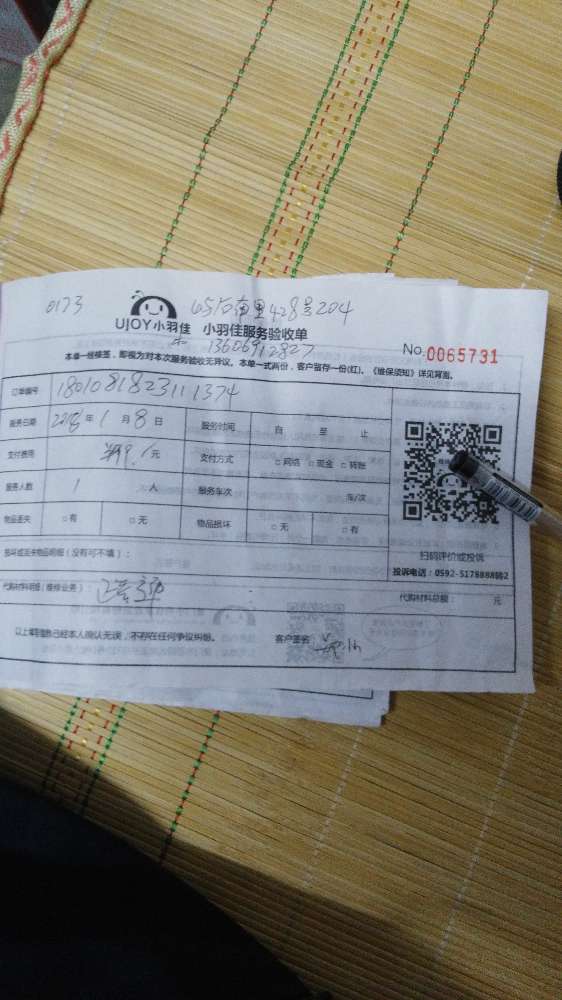 0173
里428号204
UJOY小羽佳 小羽佳服务验收单
13606912827
No.0065731
本单一经接签，即视为对本次服务验收无异议。本单一式两份，客户留存一份(红)。《维保须知》详见背面。
订单编号 1801081823111374
服务日期 2018年1月8日 服务时间 自 至 止
支付费用 元 支付方式 □网络 □现金 □转账
服务人数 1 人 服务车次 车/次
物品丢失 □有 □无 物品损坏 □无 □有
损坏或丢失物品明细（没有可不填）：
扫码评价或投诉
投诉电话：0592-5178888转2
代购材料明细（维修业务）
代购材料总额： 元
以上填写信息已经本人确认无误，不存在任何争议纠纷。 客户签名